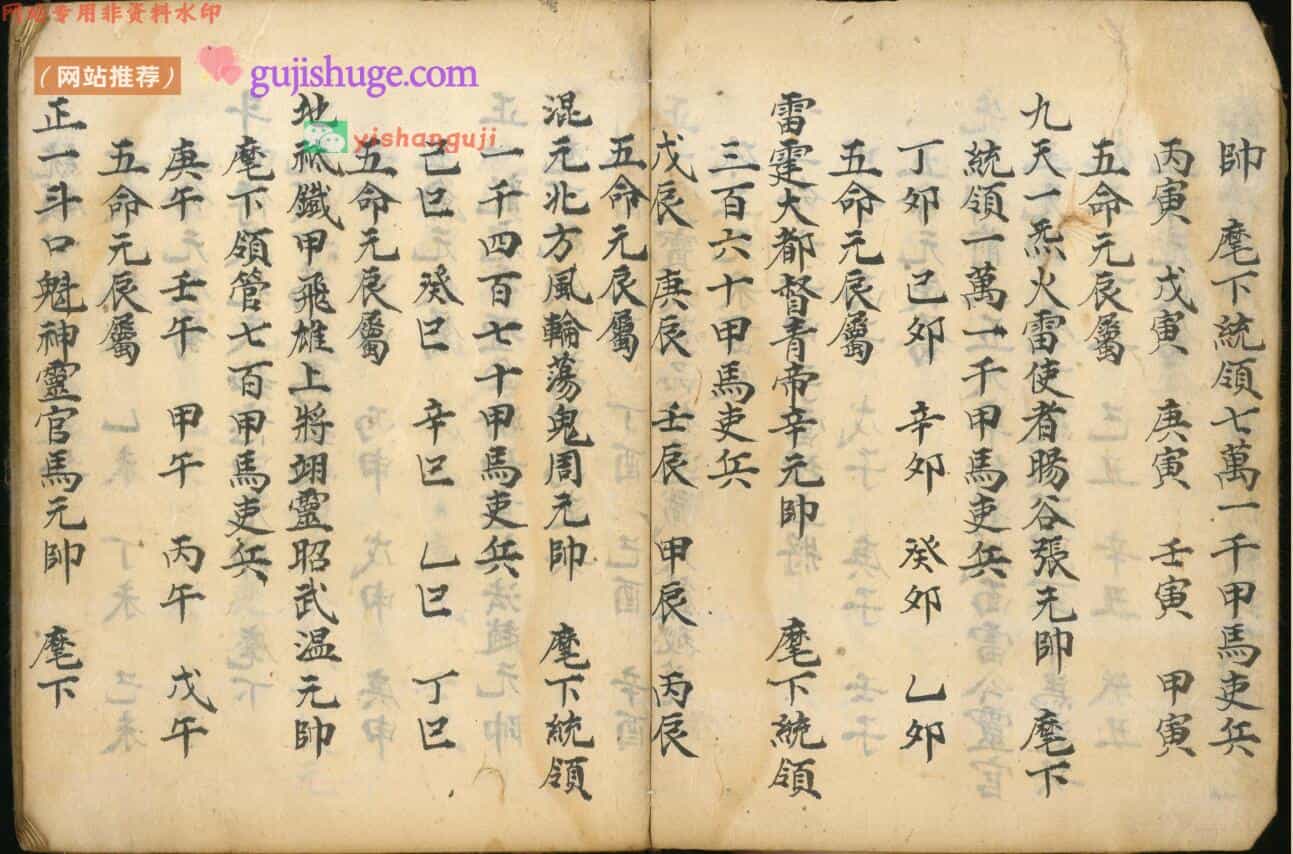 网站专用非资料水印
（网站推荐）
gujishuge.com
yishanguji
帥　麾下統領七萬一千甲馬吏兵
丙寅　戊寅　庚寅　壬寅　甲寅
五命元辰屬
九天一炁火雷使者暘谷張元帥　麾下
統領一萬一千甲馬吏兵
丁卯　己卯　辛卯　癸卯　乙卯
五命元辰屬
雷霆大都督青帝辛元帥　麾下統領
三百六十甲馬吏兵
戊辰　庚辰　壬辰　甲辰　丙辰
五命元辰屬
混元北方風輪蕩鬼周元帥　麾下統領
一千四百七十甲馬吏兵
己巳　癸巳　辛巳　乙巳　丁巳
五命元辰屬
地祇鐵甲飛雄上將翊靈昭武温元帥
麾下領管七百甲馬吏兵
庚午　壬午　甲午　丙午　戊午
五命元辰屬
正一斗口魁神靈官馬元帥　麾下